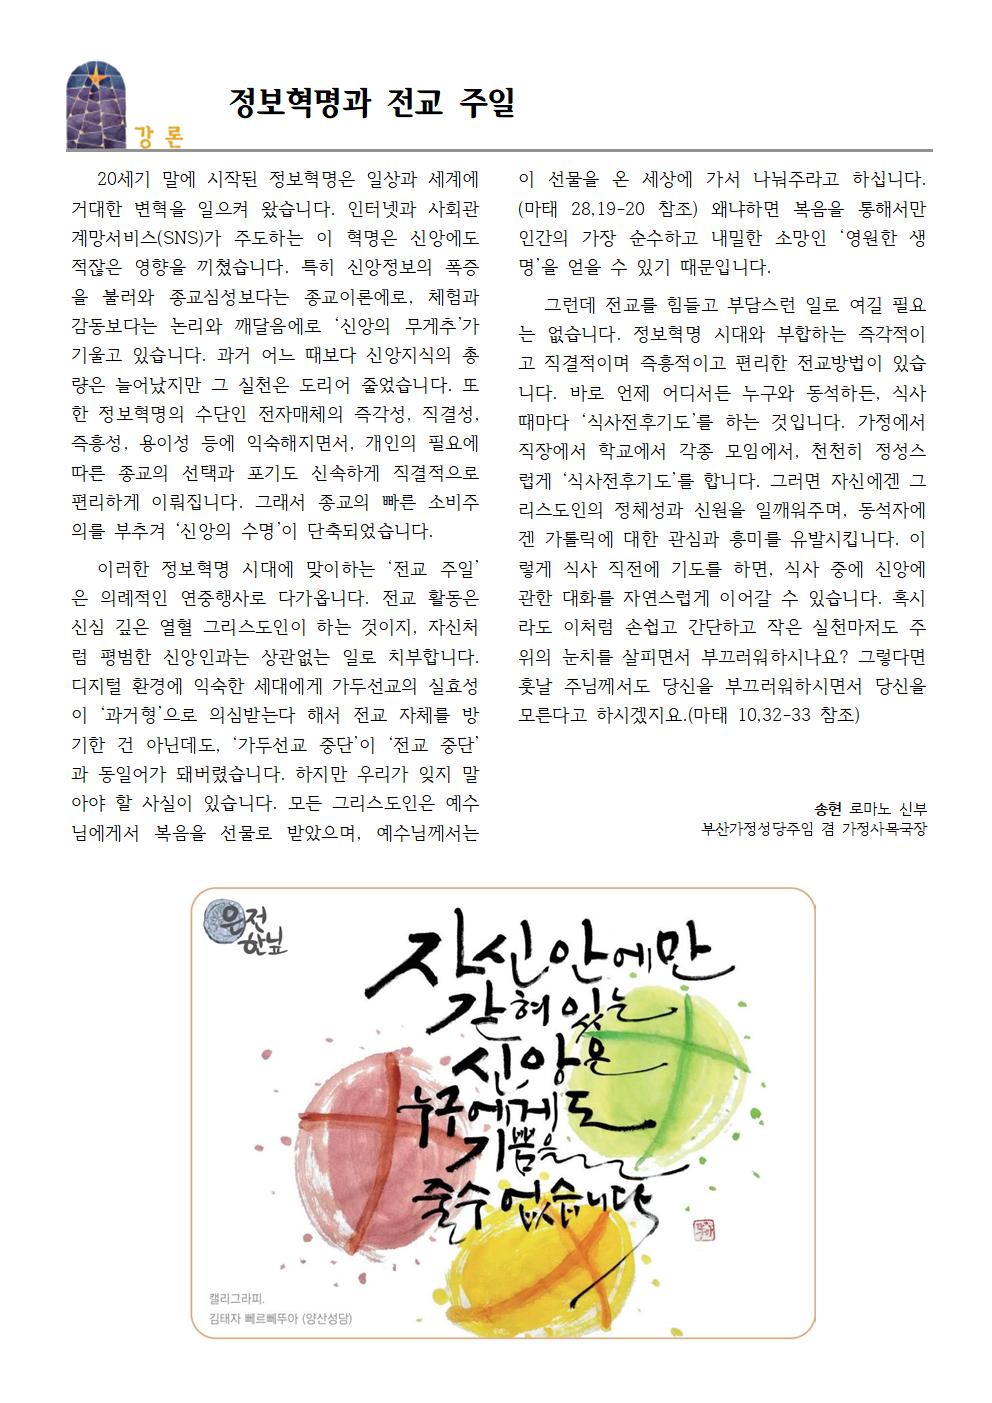 강 론
정보혁명과 전교 주일
20세기 말에 시작된 정보혁명은 일상과 세계에
거대한 변혁을 일으켜 왔습니다. 인터넷과 사회관
계망서비스(SNS)가 주도하는 이 혁명은 신앙에도
적잖은 영향을 끼쳤습니다. 특히 신앙정보의 폭증
을 불러와 종교심성보다는 종교이론에로, 체험과
감동보다는 논리와 깨달음에로 ‘신앙의 무게추’가
기울고 있습니다. 과거 어느 때보다 신앙지식의 총
량은 늘어났지만 그 실천은 도리어 줄었습니다. 또
한 정보혁명의 수단인 전자매체의 즉각성, 직결성,
즉흥성, 용이성 등에 익숙해지면서, 개인의 필요에
따른 종교의 선택과 포기도 신속하게 직결적으로
편리하게 이뤄집니다. 그래서 종교의 빠른 소비주
의를 부추겨 ‘신앙의 수명’이 단축되었습니다.
이러한 정보혁명 시대에 맞이하는 ‘전교 주일’
은 의례적인 연중행사로 다가옵니다. 전교 활동은
신심 깊은 열혈 그리스도인이 하는 것이지, 자신처
럼 평범한 신앙인과는 상관없는 일로 치부합니다.
디지털 환경에 익숙한 세대에게 가두선교의 실효성
이 ‘과거형’으로 의심받는다 해서 전교 자체를 방
기한 건 아닌데도, ‘가두선교 중단’이 ‘전교 중단’
과 동일어가 돼버렸습니다. 하지만 우리가 잊지 말
아야 할 사실이 있습니다. 모든 그리스도인은 예수
님에게서 복음을 선물로 받았으며, 예수님께서는
이 선물을 온 세상에 가서 나눠주라고 하십니다.
(마태 28,19-20 참조) 왜냐하면 복음을 통해서만
인간의 가장 순수하고 내밀한 소망인 ‘영원한 생
명’을 얻을 수 있기 때문입니다.
그런데 전교를 힘들고 부담스런 일로 여길 필요
는 없습니다. 정보혁명 시대와 부합하는 즉각적이
고 직결적이며 즉흥적이고 편리한 전교방법이 있습
니다. 바로 언제 어디서든 누구와 동석하든, 식사
때마다 ‘식사전후기도’를 하는 것입니다. 가정에서
직장에서 학교에서 각종 모임에서, 천천히 정성스
럽게 ‘식사전후기도’를 합니다. 그러면 자신에겐 그
리스도인의 정체성과 신원을 일깨워주며, 동석자에
겐 가톨릭에 대한 관심과 흥미를 유발시킵니다. 이
렇게 식사 직전에 기도를 하면, 식사 중에 신앙에
관한 대화를 자연스럽게 이어갈 수 있습니다. 혹시
라도 이처럼 손쉽고 간단하고 작은 실천마저도 주
위의 눈치를 살피면서 부끄러워하시나요? 그렇다면
훗날 주님께서도 당신을 부끄러워하시면서 당신을
모른다고 하시겠지요.(마태 10,32-33 참조)
송현 로마노 신부
부산가정성당주임 겸 가정사목국장
은전
한닢
자신 안에만
갇혀 있는
신앙은
누구에게도
기쁨을
줄 수 없습니다
캘리그라피.
김태자 뻬르뻬뚜아 (양산성당)